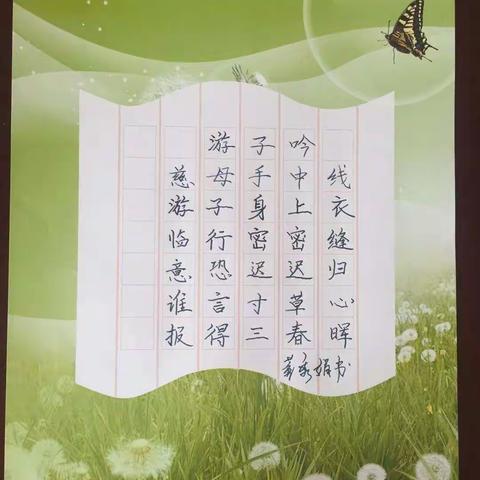 游子吟
慈母手中线
游子身上衣
临行密密缝
意恐迟迟归
谁言寸草心
报得三春晖
秀娟书